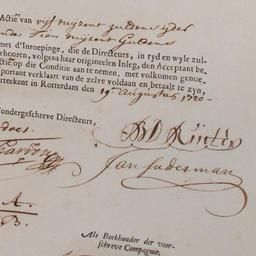 Actie van vijf duijzent guldens ijder
met d'Inroepinge, die de Directeurs, in tyd en wyle zul-
behooren, volgens haar origineelen Inleg, den Acceptant be-
Actie op die Conditie aan te nemen, met volkomen genoe-
apportant verklaart van de zelve voldaan en betaalt te zyn,
erteekent in Rotterdam den 19en Augustus 1720
ondergeschreve Directeurs,
Jan Suderman
A.
B.
Als Boekhouder der voor-
schreve Compagnie.